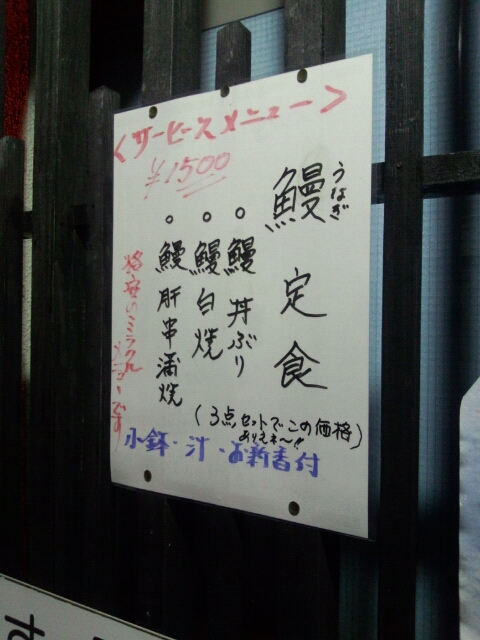 <サービスメニュー>
¥1500
うなぎ
鰻定食
。鰻丼ぶり
。鰻白焼
。鰻肝串蒲焼
(3点セットでこの価格
ありえね〜!!)
格安のミラクル
メニューです
小鉢・汁・お新香付